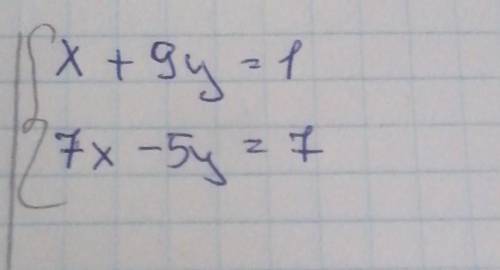 x + 9y = 1
7x - 5y = 7